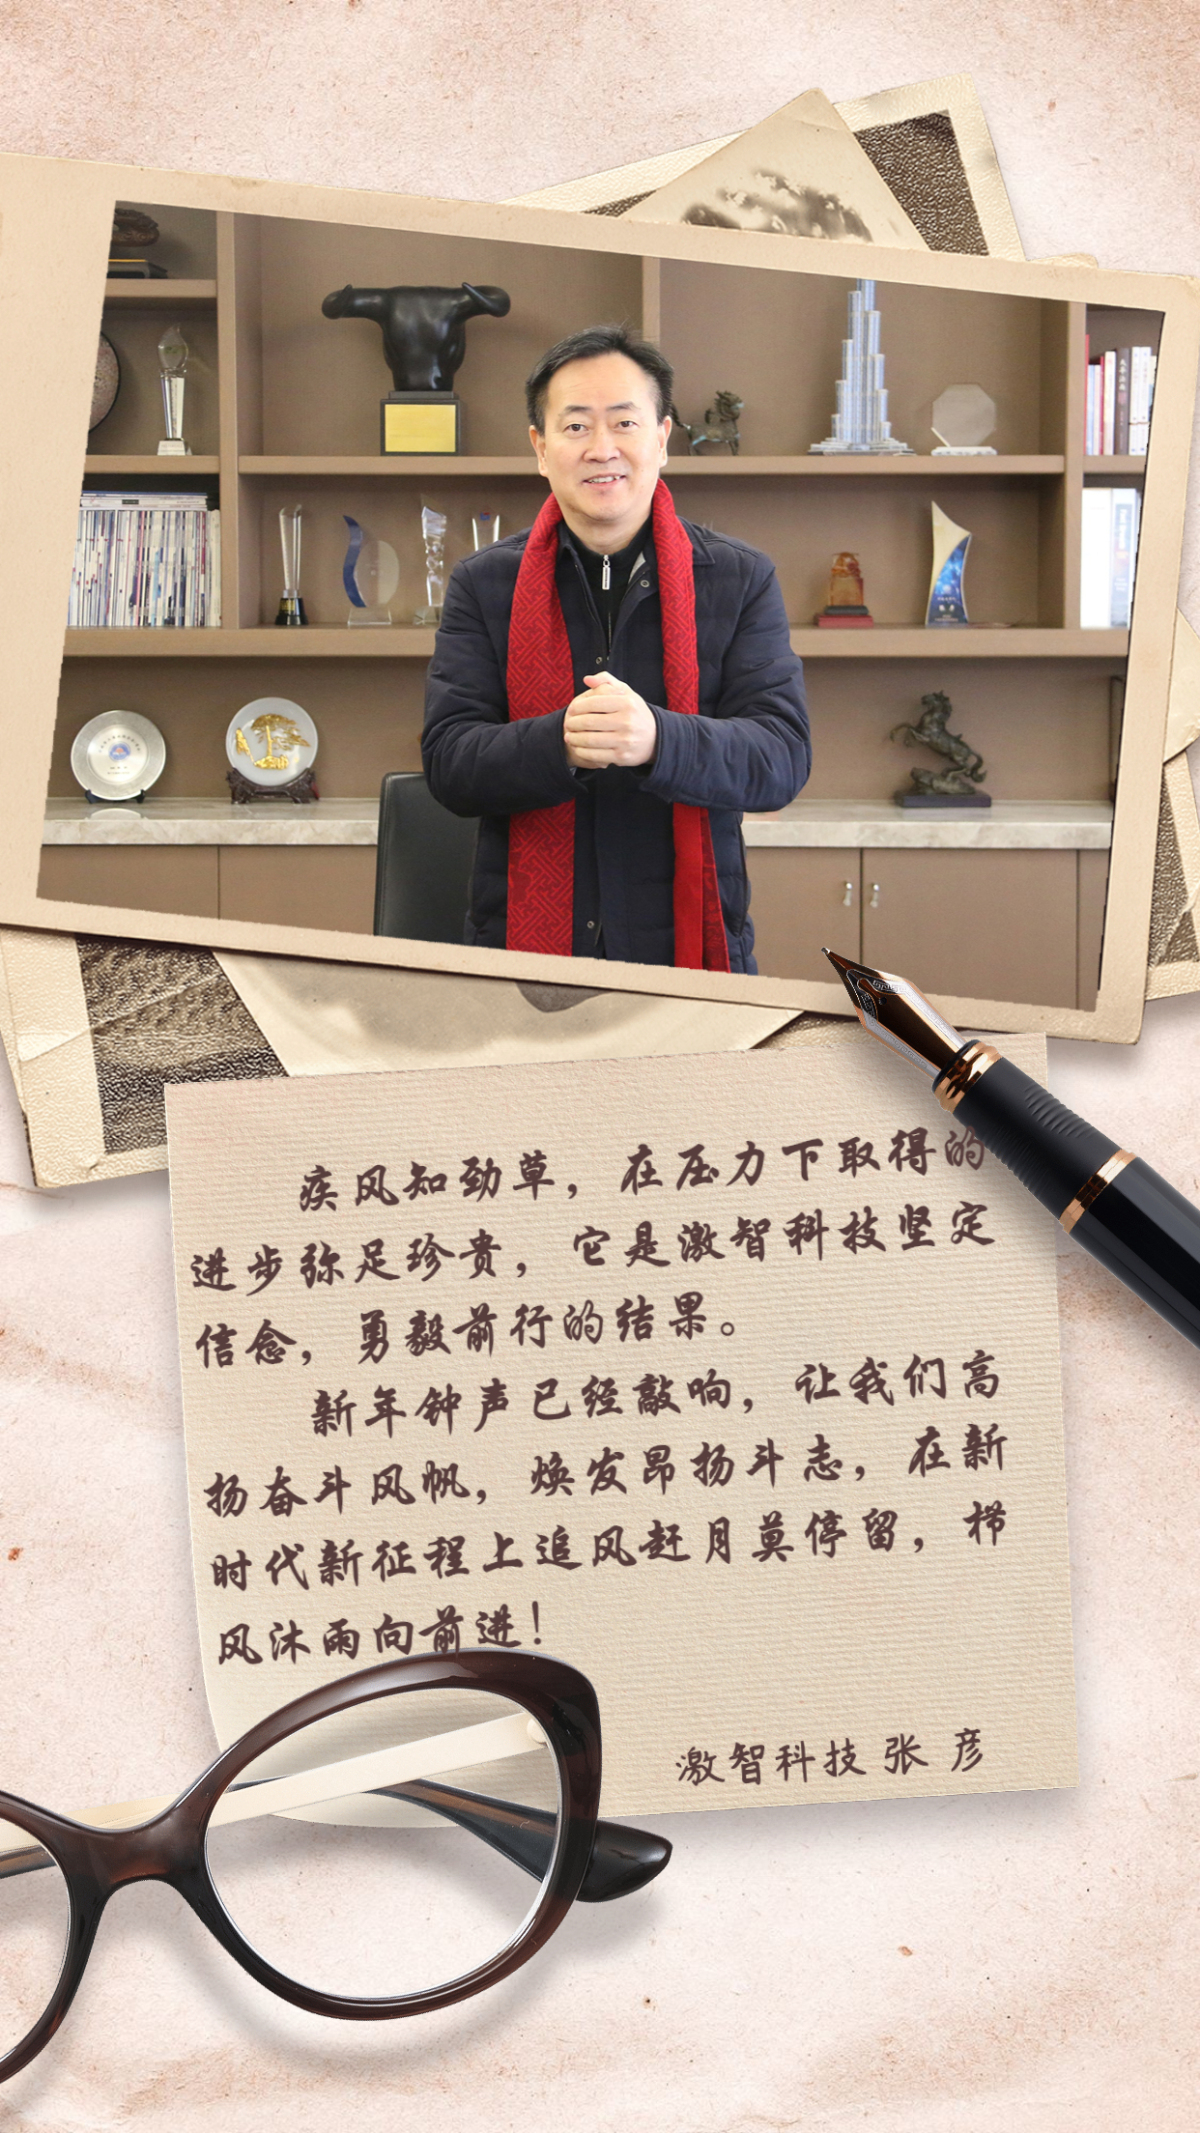 疾风知劲草，在压力下取得的
进步弥足珍贵，它是激智科技坚定
信念，勇毅前行的结果。
新年钟声已经敲响，让我们高
扬奋斗风帆，焕发昂扬斗志，在新
时代新征程上追风赶月莫停留，栉
风沐雨向前进！
激智科技 张 彦